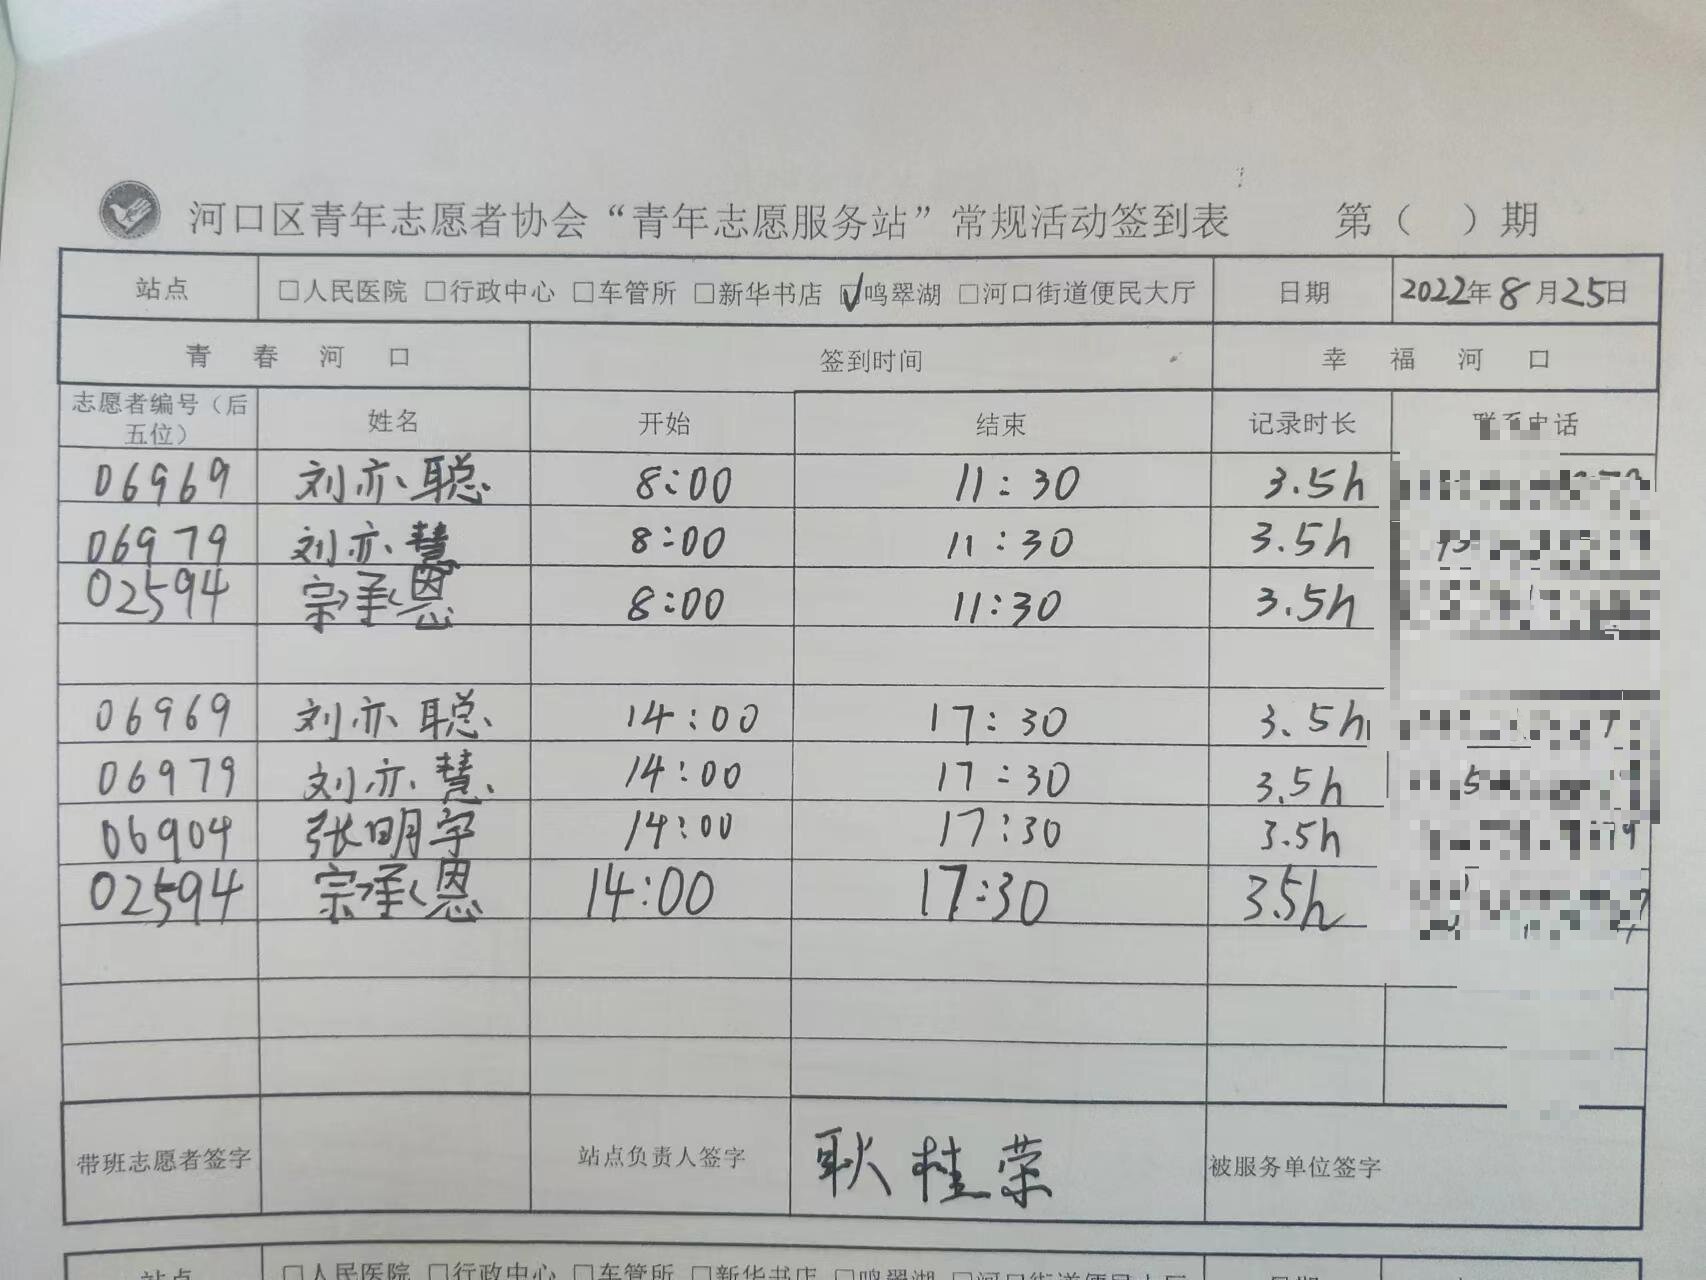 河口区青年志愿者协会“青年志愿服务站”常规活动签到表 第（ ）期
站点 □人民医院 □行政中心 □车管所 □新华书店 ☑鸣翠湖 □河口街道便民大厅 日期 2022年8月25日
青春河口 签到时间 幸福河口
志愿者编号（后五位） 姓名 开始 结束 记录时长 联系电话
06969 刘亦聪 8:00 11:30 3.5h
06979 刘亦慧 8:00 11:30 3.5h
02594 宗承恩 8:00 11:30 3.5h
06969 刘亦聪 14:00 17:30 3.5h
06979 刘亦慧 14:00 17:30 3.5h
06904 张明宇 14:00 17:30 3.5h
02594 宗承恩 14:00 17:30 3.5h
带班志愿者签字 站点负责人签字 耿桂荣 被服务单位签字
站点 □人民医院 □行政中心 □车管所 □新华书店 □鸣翠湖 □河口街道便民大厅 日期